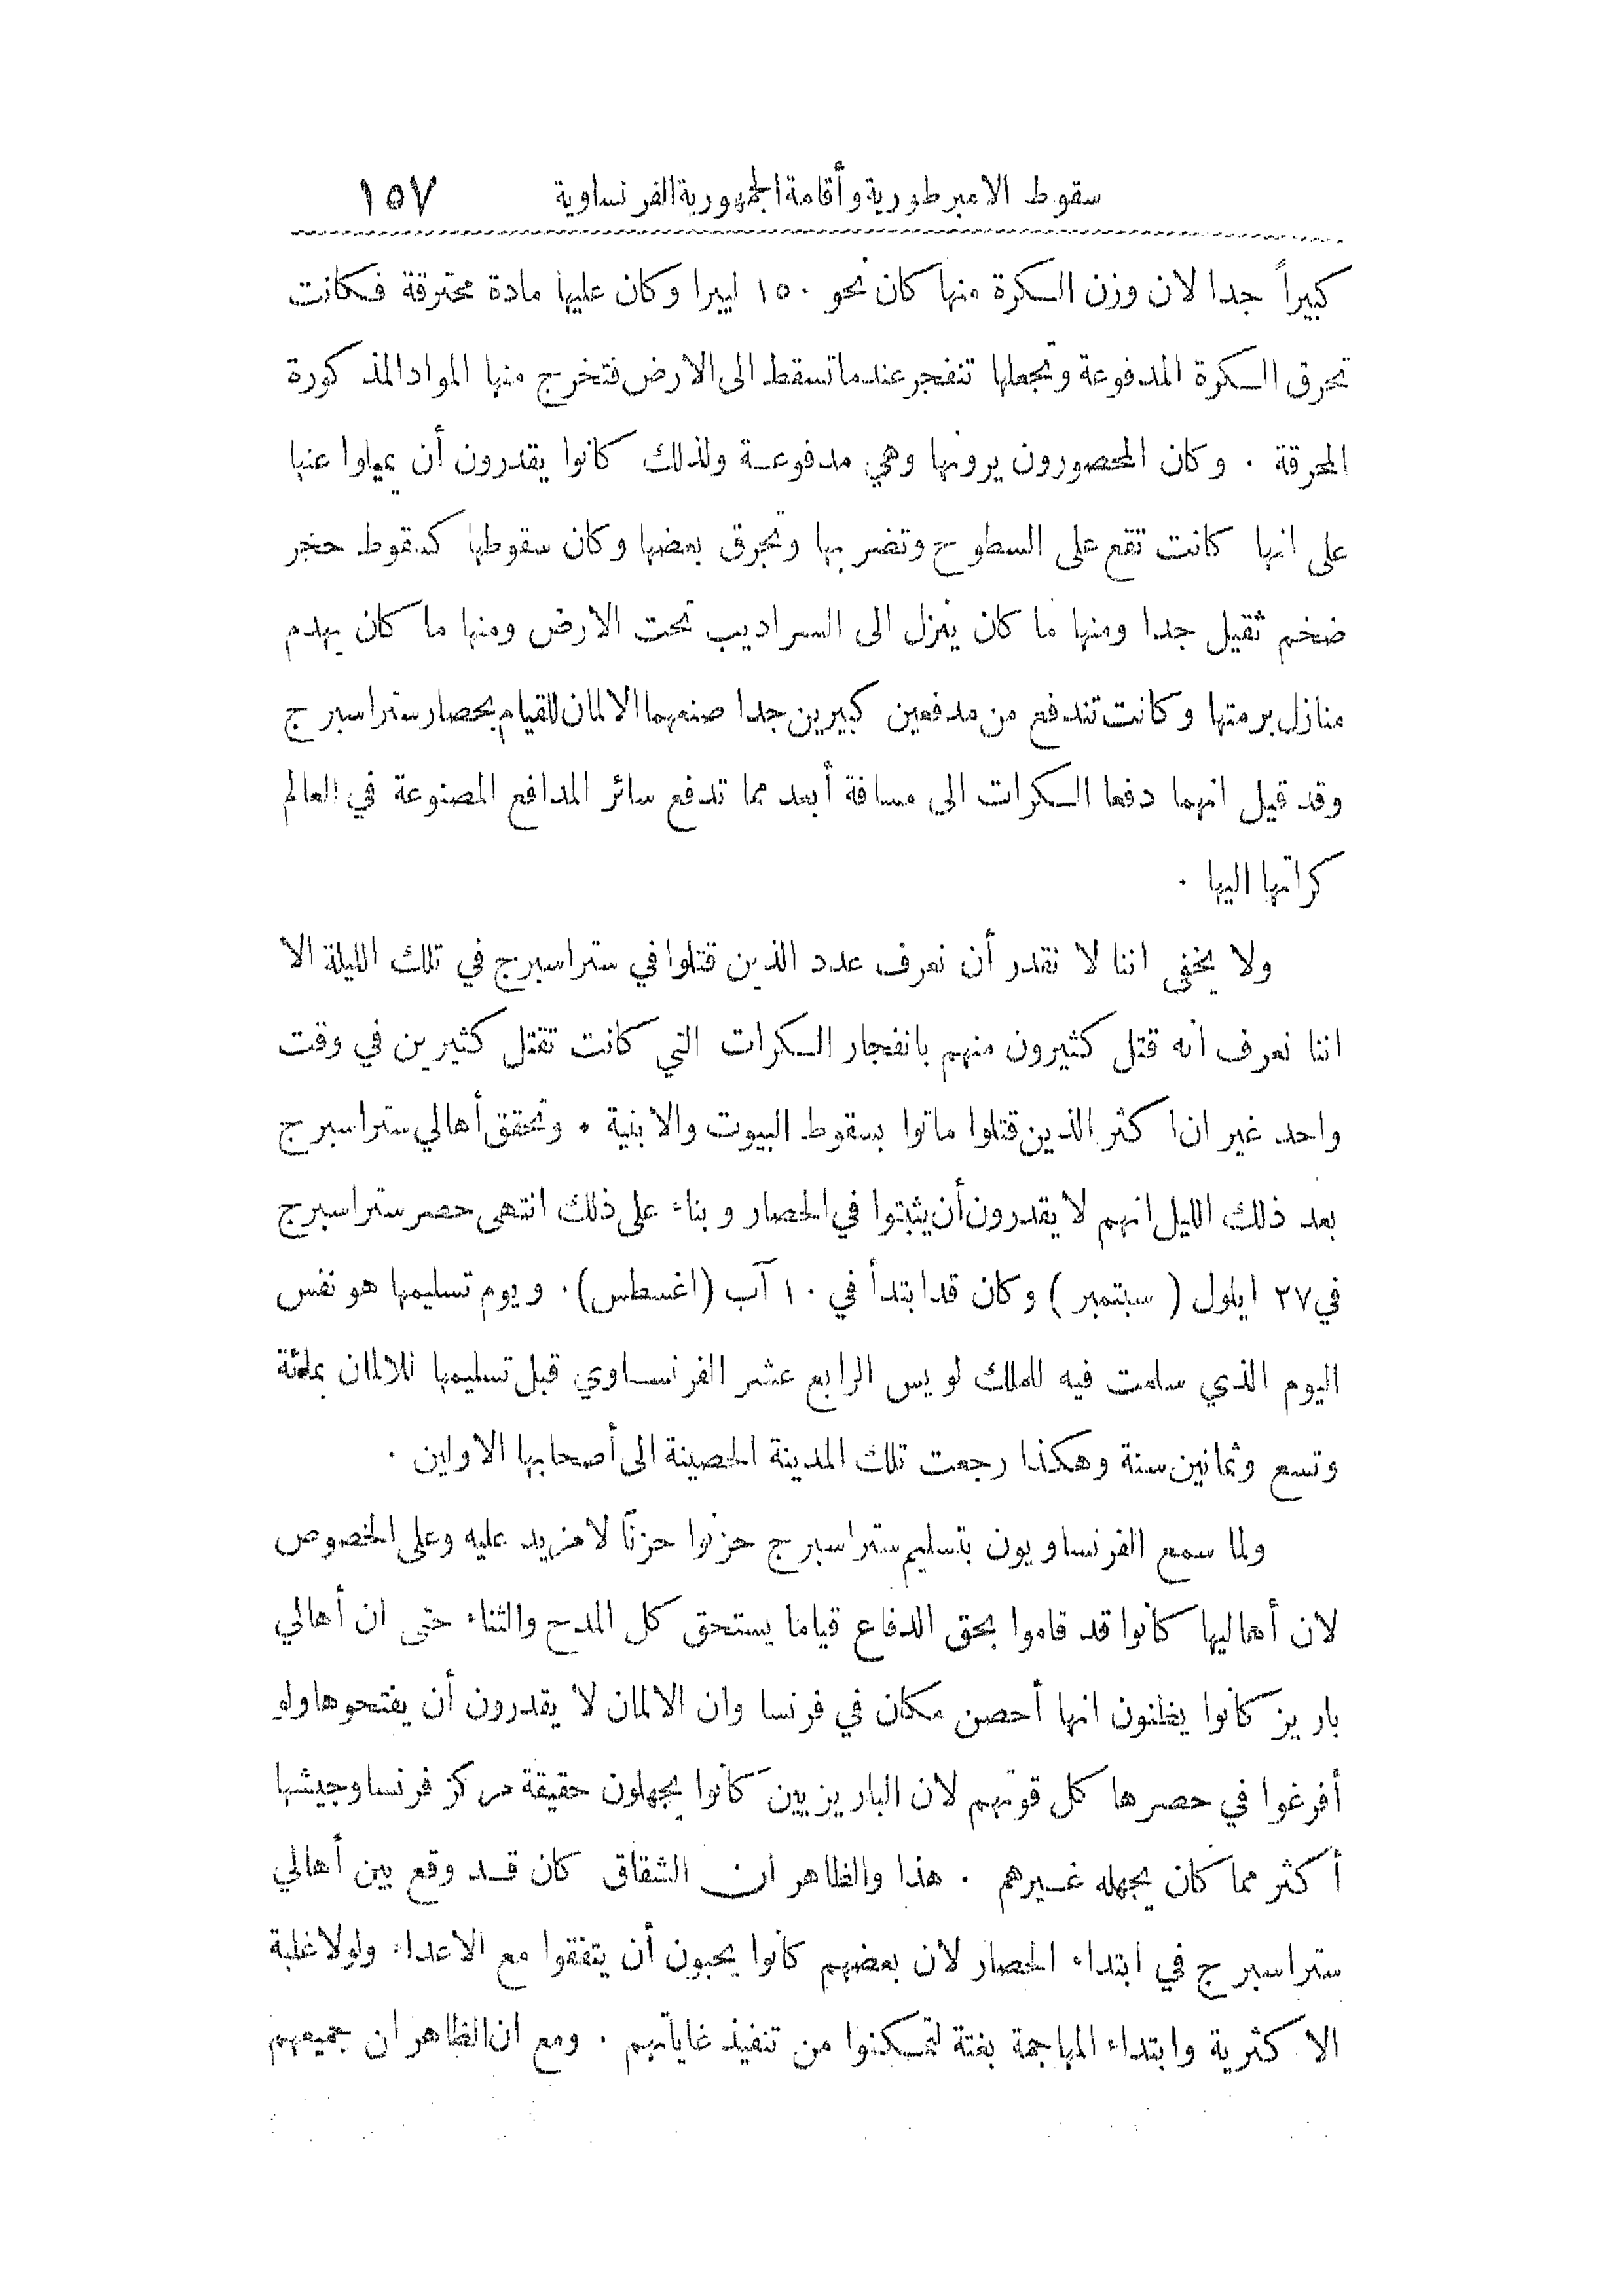 سقوط الامبرطورية وأقامة الجمهورية الفرنساوية ١٥٧
كبيراً جدا لان وزن الكرة منها كان نحو ١٥٠ ليبرا وكان عليها مادة محترقة فكانت
تحرق الكرة المدفوعة وتجعلها تنفجر عند ما تسقط الى الارض فتخرج منها المواد المذكورة
المحرقة . وكان المحصورون يرونها وهي مدفوعة ولذلك كانوا يقدرون أن يميلوا عنها
على انها كانت تقع على السطوح وتضر بها وتحرق بعضها وكان سقوطها كسقوط حجر
ضخم ثقيل جدا ومنها ما كان ينزل الى السراديب تحت الارض ومنها ما كان يهدم
منازل برمتها وكانت تندفع من مدفعين كبيرين جدا صنعهما الالمان للقيام بحصار ستراسبرج
وقد قيل انهما دفعا الكرات الى مسافة أبعد مما تدفع سائر المدافع المصنوعة في العالم
كراتها اليها .
ولا يخفى اننا لا نقدر أن نعرف عدد الذين قتلوا في ستراسبرج في تلك الليلة الا
اننا نعرف أنه قتل كثيرون منهم بانفجار الكرات التي كانت تقتل كثيرين في وقت
واحد غير ان اكثر الذين قتلوا ماتوا بسقوط البيوت والابنية . وتحقق أهالي ستراسبرج
بعد ذلك الليل انهم لا يقدرون أن يثبتوا في الحصار وبناء على ذلك انتهى حصر ستراسبرج
في ٢٧ ايلول ( سبتمبر ) وكان قد ابتدأ في ١٠ آب (اغسطس) . ويوم تسليمها هو نفس
اليوم الذي سلمت فيه للملك لويس الرابع عشر الفرنساوي قبل تسليمها للالمان بمائة
وتسع وثمانين سنة وهكذا رجعت تلك المدينة الحصينة الى أصحابها الاولين .
ولما سمع الفرنساويون بتسليم ستراسبرج حزنوا حزنًا لا مزيد عليه وعلى الخصوص
لان أهاليها كانوا قد قاموا بحق الدفاع قياما يستحق كل المدح والثناء حتى ان أهالي
باريز كانوا يظنون انها أحصن مكان في فرنسا وان الالمان لا يقدرون أن يفتحوها ولو
أفرغوا في حصرها كل قوتهم لان الباريزيين كانوا يجهلون حقيقة مركز فرنسا وجيشها
أكثر مما كان يجهله غيرهم . هذا والظاهر ان الشقاق كان قد وقع بين أهالي
ستراسبرج في ابتداء الحصار لان بعضهم كانوا يحبون أن يتفقوا مع الاعداء ولولا غلبة
الاكثرية وابتداء المهاجمة بغتة لتمكنوا من تنفيذ غاياتهم . ومع ان الظاهر ان جميعهم